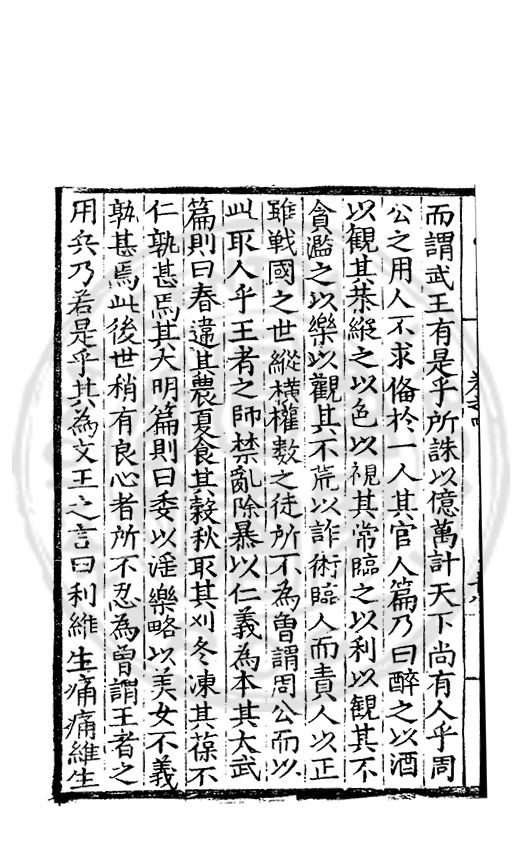 而謂武王有是乎所誅以億萬計天下尚有人乎周
公之用人不求俻於一人其官人篇乃曰醉之以酒
以觀其恭縱之以色以視其常臨之以利以觀其不
貪濫之以樂以觀其不荒以詐術臨人而責人以正
雖戰國之世縱横權數之徒所不為曽謂周公而以
此取人乎王者之師禁亂除暴以仁義為本其大武
篇則曰春違其農夏食其穀秋取其刈冬凍其葆不
仁孰甚焉其大明篇則曰委以淫樂略以美女不義
孰甚焉此後世稍有良心者所不忍為曽謂王者之
用兵乃若是乎其為文王之言曰利維生痛痛維生